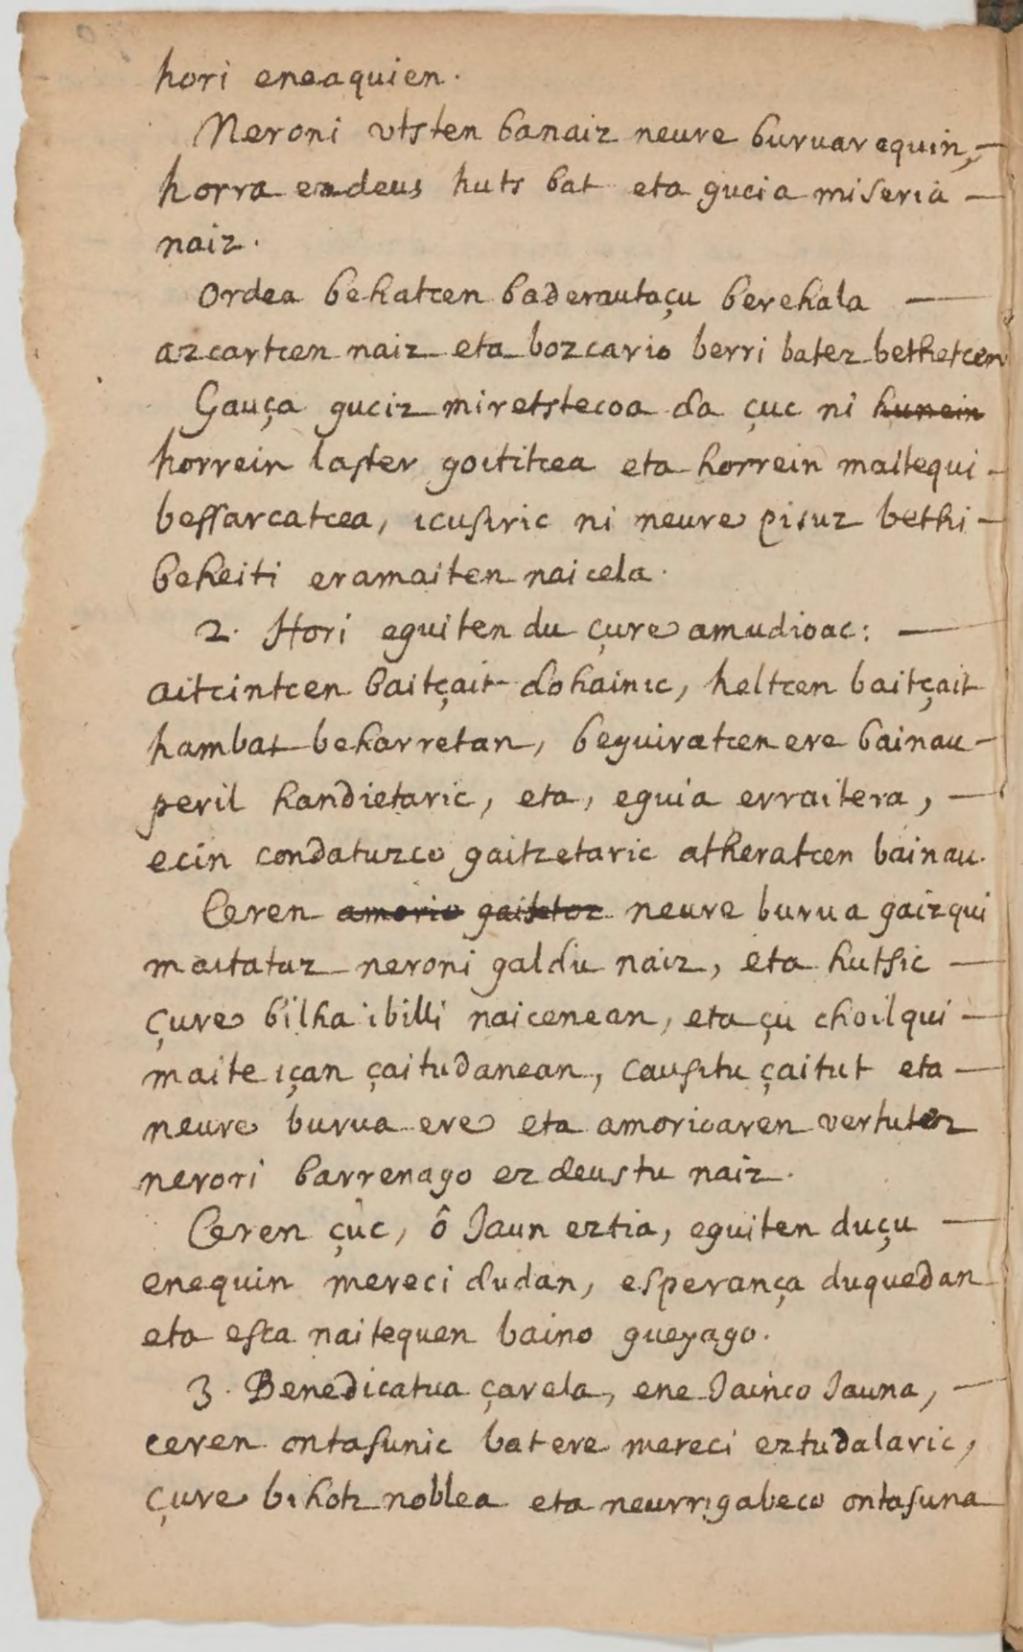 hori eneaquien.
Neroni vtsten banaiz neure buruarequin, —
horra ezdeus huts bat eta gucia miseria —
naiz.
Ordea behatcen baderautaçu berehala —
azcartcen naiz eta bozcario berri batez bethetcen
Gauça guciz miretstecoa da çuc ni ~~hunein~~
horrein laster goititcea eta horrein maitequi -
bessarcatcea, icusiric ni neure pisuz bethi -
beheiti eramaiten naicela.
2. Hori eguiten du çure amudioac: —
aitcintcen baitçait dohainic, heltcen baitçait
hambat beharretan, beguiratcen ere bainau -
peril handietaric, eta, eguia erraitera, —
ecin condatuzco gaitzetaric atheratcen bainau.
Ceren ~~amorio~~ ~~gaistoz~~ neure burua gaizqui
maitatuz neroni galdu naiz, eta hutsic —
çure bilha ibilli naicenean, eta çu choilqui —
maite içan çaitudanean, causitu çaitut eta —
neure burua ere eta amorioaren vertutez
nerori barrenago ezdeustu naiz.
Ceren çuc, ô Jaun eztia, eguiten duçu —
enequin mereci dudan, esperança duquedan
eta esca naitequen baino gueyago.
3. Benedicatua çarela, ene Jainco Jauna, —
ceren ontasunic batere mereci eztudalaric,
çure bihotz noblea eta neurrigabeco ontasuna